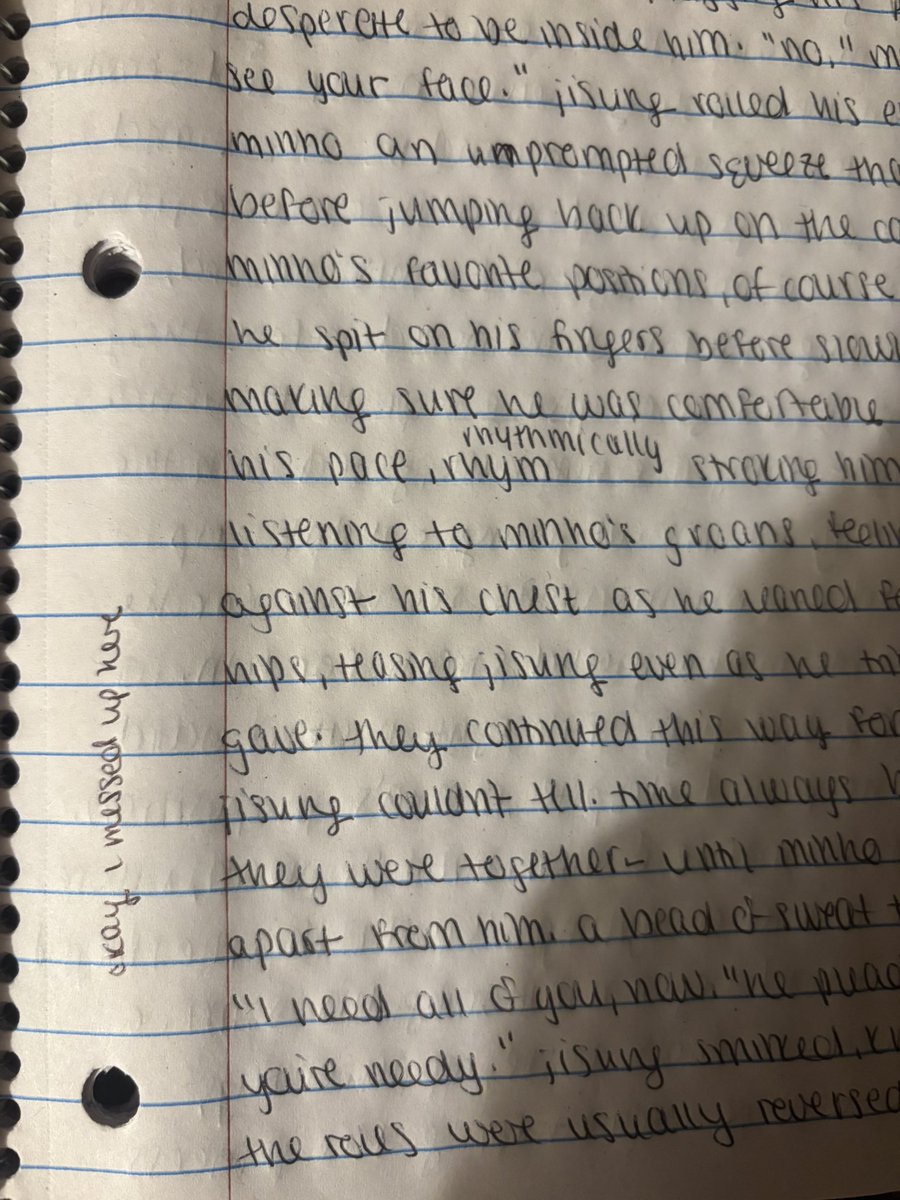 desperate to be inside him. "no," m
see your face." jisung rolled his e
minho an unprompted squeeze tha
before jumping back up on the co
minho's favorite positions, of course
he spit on his fingers before slow
making sure he was comfertable
rhythmically
his pace, rhym stroking him
listening to minho's groans, feeli
against his chest as he leaned fo
hips, teasing jisung even as he
gave. they continued this way for
jisung couldn't tell. time always
they were together- until minho
apart from him. a bead of sweat t
"I need all of you, now." he plead
you're needy." jisung smirked,
the roles were usually reversed
okay, i messed up here